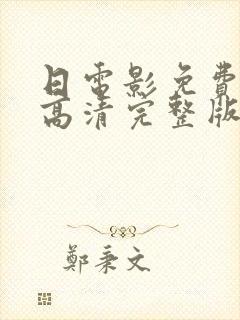 日電影免費
高清完整版
鄭秉文